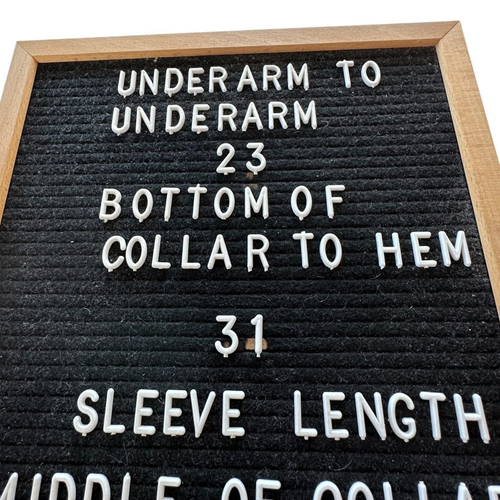 UNDERARM TO
UNDERARM
23
BOTTOM OF
COLLAR TO HEM
31
SLEEVE LENGTH
MIDDLE OF